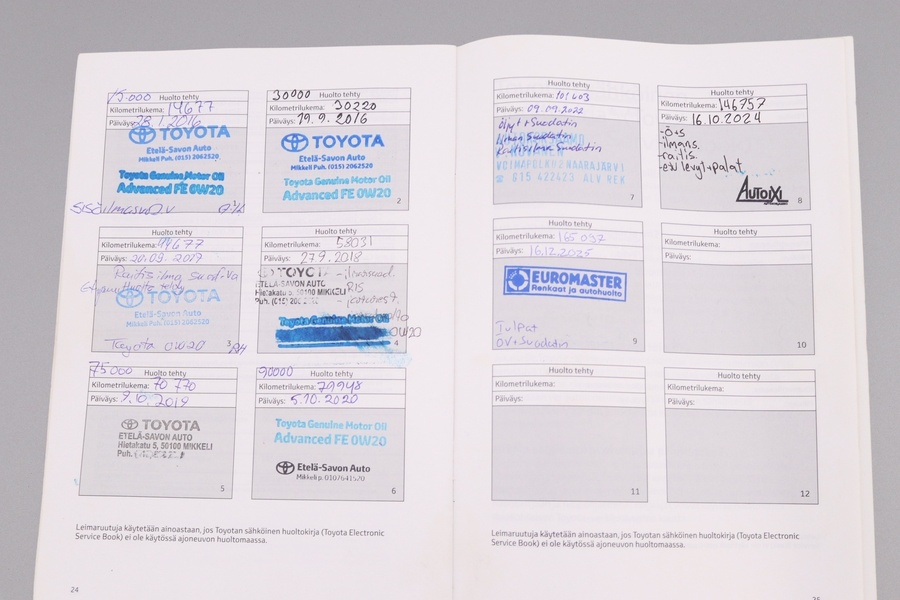 15.000 Huolto tehty
Kilometrilukema: 14677
Päiväys: 28.1.2016
TOYOTA
Etelä-Savon Auto
Mikkeli Puh. (015) 2062520
Toyota Genuine Motor Oil
Advanced FE 0W20
30000 Huolto tehty
Kilometrilukema: 30220
Päiväys: 19.9.2016
TOYOTA
Etelä-Savon Auto
Mikkeli Puh. (015) 2062520
Toyota Genuine Motor Oil
Advanced FE 0W20
2
Huolto tehty
Kilometrilukema: 44677
Päiväys: 20.09.2017
Raitis ilma suod.va
TOYOTA
Etelä-Savon Auto
Mikkeli Puh. (015) 2062520
Toyota 0W20
3
Huolto tehty
Kilometrilukema: 58031
Päiväys: 27.9.2018
TOYOTA
ETELÄ-SAVON AUTO
Hietakatu 5, 50100 MIKKELI
Puh. (015)
Toyota Genuine Motor Oil
0W20
4
75000 Huolto tehty
Kilometrilukema: 70 770
Päiväys: 9.10.2019
TOYOTA
ETELÄ-SAVON AUTO
Hietakatu 5, 50100 MIKKELI
Puh.
5
90000 Huolto tehty
Kilometrilukema: 79948
Päiväys: 5.10.2020
Toyota Genuine Motor Oil
Advanced FE 0W20
Etelä-Savon Auto
Mikkeli p. 0107641520
6
Leimaruutuja käytetään ainoastaan, jos Toyotan sähköinen huoltokirja (Toyota Electronic
Service Book) ei ole käytössä ajoneuvon huoltomaassa.
24
Huolto tehty
Kilometrilukema: 101403
Päiväys: 09.09.2022
Öljyt+Suodatin
Ilman Suodatin
Raitisilma Suodatin
VOIMAPOLKU 2 NAARAJÄRVI
015 422423 ALV REK
7
Huolto tehty
Kilometrilukema: 146757
Päiväys: 16.10.2024
-Ö+s
-ilmans.
-raitis.
-etu levyt+palat
AUTOIXI
8
Huolto tehty
Kilometrilukema: 165 092
Päiväys: 16.12.2025
EUROMASTER
Renkaat ja autohuolto
Tulpat
ÖV+Suodatin
9
Huolto tehty
Kilometrilukema:
Päiväys:
10
Huolto tehty
Kilometrilukema:
Päiväys:
11
Huolto tehty
Kilometrilukema:
Päiväys:
12
Leimaruutuja käytetään ainoastaan, jos Toyotan sähköinen huoltokirja (Toyota Electronic
Service Book) ei ole käytössä ajoneuvon huoltomaassa.